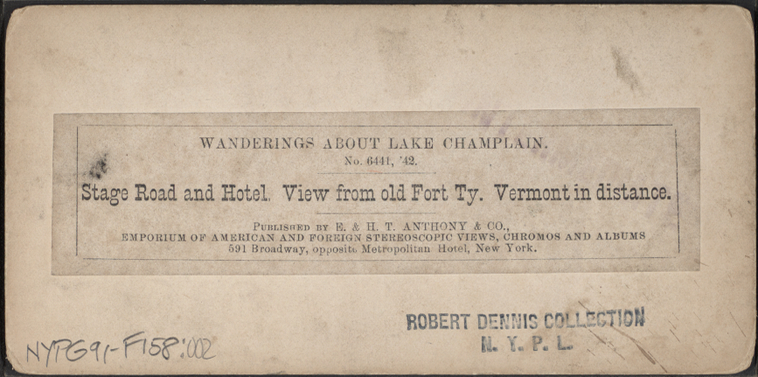 WANDERINGS ABOUT LAKE CHAMPLAIN.
No. 6441, '42.
Stage Road and Hotel. View from old Fort Ty. Vermont in distance.
PUBLISHED BY E. & H. T. ANTHONY & CO.,
EMPORIUM OF AMERICAN AND FOREIGN STEREOSCOPIC VIEWS, CHROMOS AND ALBUMS
591 Broadway, opposite Metropolitan Hotel, New York.
ROBERT DENNIS COLLECTION
N. Y. P. L.
NYPG91-F158:002